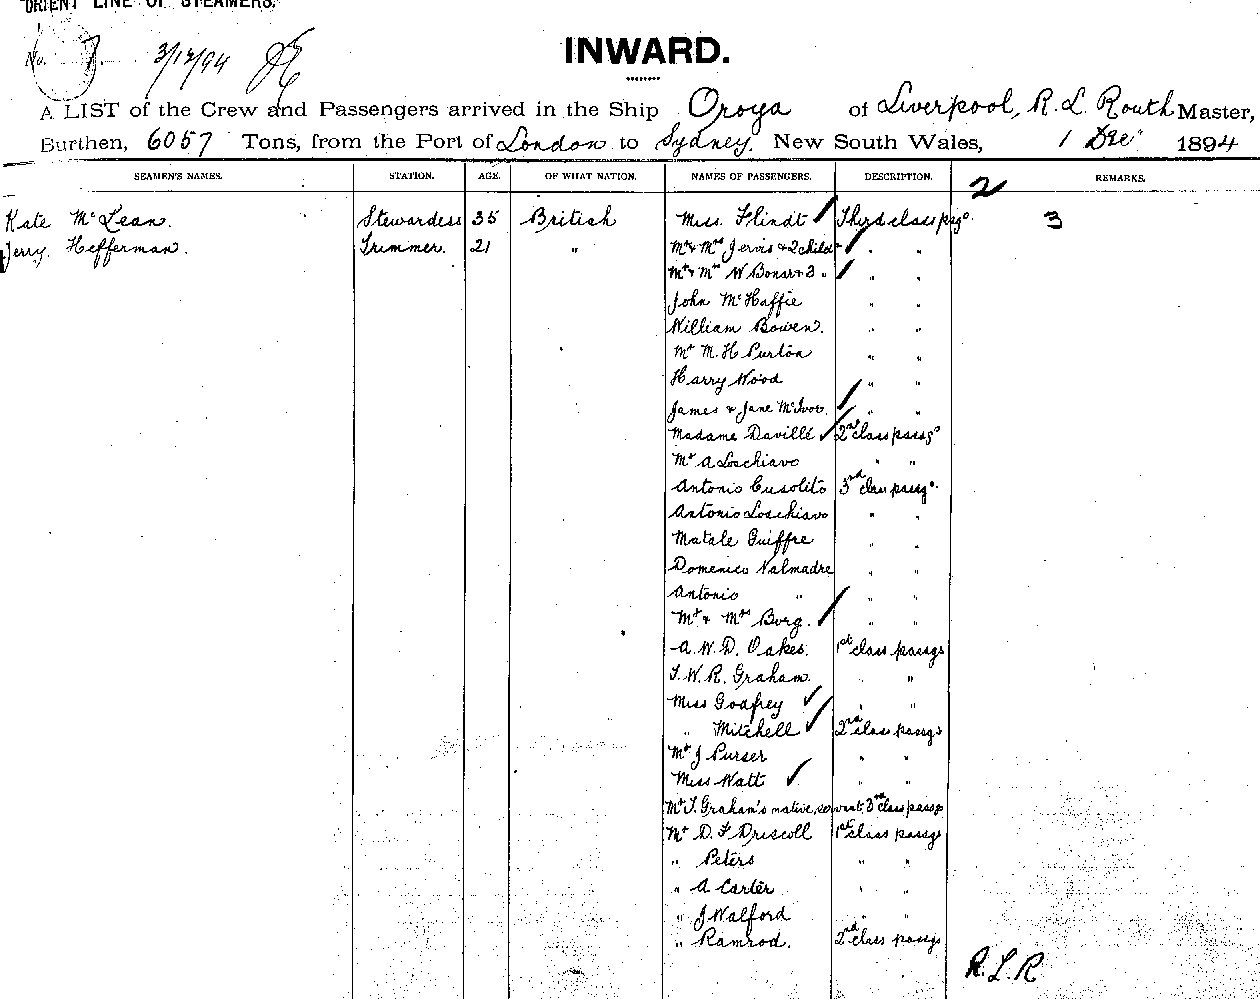 ORIENT LINE OF STEAMERS.
No. 7. 3/12/94
INWARD.
A LIST of the Crew and Passengers arrived in the Ship Oroya of Liverpool, R. L. Routh Master,
Burthen, 6057 Tons, from the Port of London to Sydney, New South Wales, 1 Dec' 1894
SEAMEN'S NAMES. STATION. AGE. OF WHAT NATION. NAMES OF PASSENGERS. DESCRIPTION. 2 REMARKS.
Kate McLean. Stewardess 35 British Miss Flindt Third class psgs. 3
Jerry Hefferman. Trimmer. 21 " Mr & Mrs Jervis & 2 child " "
Mr & Mrs W Bonar & 3 " " "
John McHaffie " "
William Bowen. " "
Mr M. H Purton " "
Harry Wood " "
James & Jane McIvor. " "
Madame Davillé 2nd class passgs
Mr A Loschiavo " "
Antonio Cusolito 3rd class passgs.
Antonio Loschiavo " "
Matale Guiffre " "
Domenico Valmadre " "
Antonio " " "
Mr & Mrs Borg. " "
A. W. D. Oakes. 1st class passgs
T. W. R. Graham. " "
Miss Godfrey " "
" Mitchell 2nd class passgs
Mr J Purser " "
Miss Watt " "
Mr T. Graham's native servant 3rd class passgs
Mr D. F Driscoll 1st class passgs
" Peters " "
" A Carter " "
" J Walford " "
" Ramrod. 2nd class passgs
R. L. R